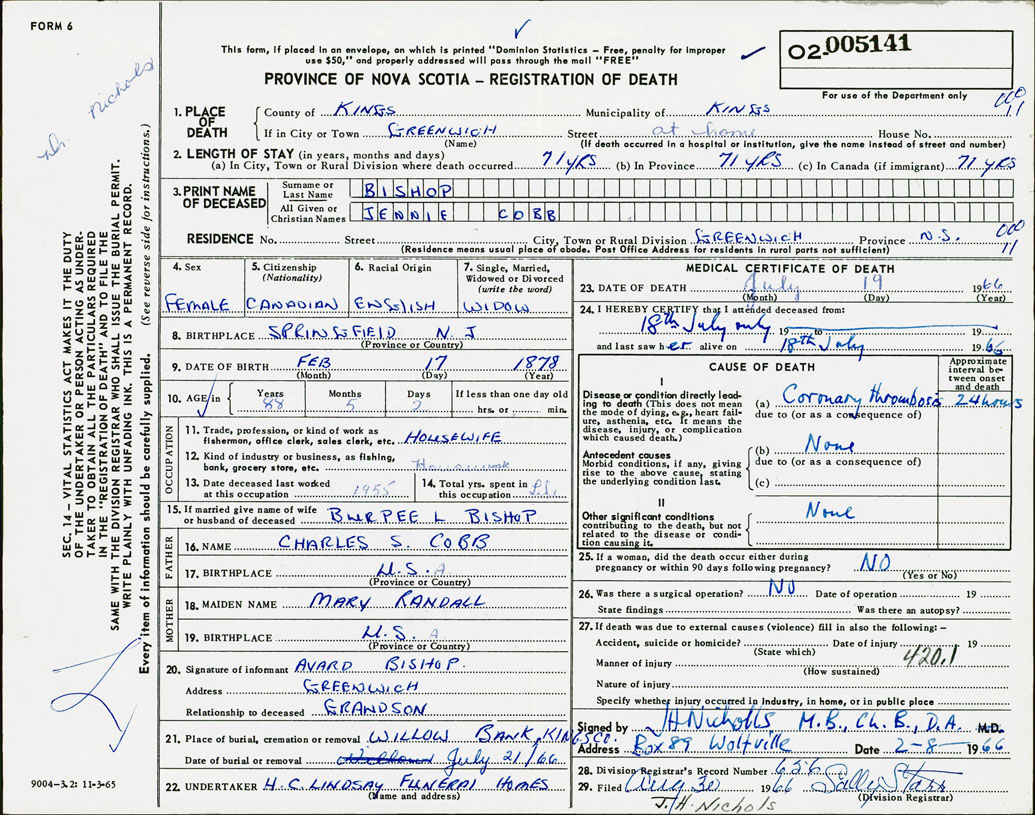 FORM 6
This form, if placed in an envelope, on which is printed "Dominion Statistics – Free, penalty for improper
use $50," and properly addressed will pass through the mail "FREE"
PROVINCE OF NOVA SCOTIA – REGISTRATION OF DEATH
02-005141
For use of the Department only
Dr. Nichols
SEC. 14 – VITAL STATISTICS ACT MAKES IT THE DUTY
OF THE UNDERTAKER OR PERSON ACTING AS UNDER-
TAKER TO OBTAIN ALL THE PARTICULARS REQUIRED
IN THE "REGISTRATION OF DEATH" AND TO FILE THE
SAME WITH THE DIVISION REGISTRAR WHO SHALL ISSUE THE BURIAL PERMIT.
WRITE PLAINLY WITH UNFADING INK. THIS IS A PERMANENT RECORD.
Every item of information should be carefully supplied. (See reverse side for instructions.)
1. PLACE OF DEATH
County of KINGS Municipality of KINGS
000 11
If in City or Town GREENWICH Street at home House No.
(Name) (If death occurred in a hospital or institution, give the name instead of street and number)
2. LENGTH OF STAY (in years, months and days)
(a) In City, Town or Rural Division where death occurred 71 YRS (b) In Province 71 YRS (c) In Canada (if immigrant) 71 YRS
3. PRINT NAME OF DECEASED
Surname or Last Name BISHOP
All Given or Christian Names JENNIE COBB
RESIDENCE No. Street City, Town or Rural Division GREENWICH Province N.S.
000 11
(Residence means usual place of abode. Post Office Address for residents in rural parts not sufficient)
4. Sex
FEMALE
5. Citizenship (Nationality)
CANADIAN
6. Racial Origin
ENGLISH
7. Single, Married, Widowed or Divorced (write the word)
WIDOW
8. BIRTHPLACE SPRINGFIELD N.J
(Province or Country)
9. DATE OF BIRTH FEB 17 1878
(Month) (Day) (Year)
10. AGE in Years Months Days If less than one day old
88 5 2 hrs. or min.
OCCUPATION
11. Trade, profession, or kind of work as fisherman, office clerk, sales clerk, etc. HOUSEWIFE
12. Kind of industry or business, as fishing, bank, grocery store, etc. Housework
13. Date deceased last worked at this occupation 1955
14. Total yrs. spent in this occupation
15. If married give name of wife or husband of deceased BURPEE L BISHOP
FATHER
16. NAME CHARLES S. COBB
17. BIRTHPLACE U.S.A.
(Province or Country)
MOTHER
18. MAIDEN NAME MARY RANDALL
19. BIRTHPLACE U.S A
(Province or Country)
20. Signature of informant AVARD BISHOP.
Address GREENWICH
Relationship to deceased GRANDSON
21. Place of burial, cremation or removal WILLOW BANK, KINGS CO.
Date of burial or removal July 21/66
22. UNDERTAKER H.C. LINDSAY FUNERAL HOMES
(Name and address)
9004-3.2: 11-3-65
MEDICAL CERTIFICATE OF DEATH
23. DATE OF DEATH July 19 1966
(Month) (Day) (Year)
24. I HEREBY CERTIFY that I attended deceased from:
18th July only 19 to 19
and last saw her alive on 18th July 1966
CAUSE OF DEATH
Approximate interval between onset and death
I
Disease or condition directly leading to death (This does not mean the mode of dying, e.g., heart failure, asthenia, etc. It means the disease, injury, or complication which caused death.)
(a) Coronary thrombosis 24 hours
due to (or as a consequence of)
Antecedent causes
Morbid conditions, if any, giving rise to the above cause, stating the underlying condition last.
(b) None
due to (or as a consequence of)
(c)
II
Other significant conditions contributing to the death, but not related to the disease or condition causing it.
None
25. If a woman, did the death occur either during pregnancy or within 90 days following pregnancy? NO
(Yes or No)
26. Was there a surgical operation? NO Date of operation 19
State findings Was there an autopsy?
27. If death was due to external causes (violence) fill in also the following: –
Accident, suicide or homicide? Date of injury 19
(State which)
Manner of injury 420.1
(How sustained)
Nature of injury
Specify whether injury occurred in Industry, in home, or in public place
Signed by JH Nicholls M.B., Ch.B., D.A. M.D.
Address Box 89 Wolfville Date 2-8-1966
28. Division Registrar's Record Number 656
29. Filed Aug 30 1966 Sally Starr
(Division Registrar)
J.H. Nichols